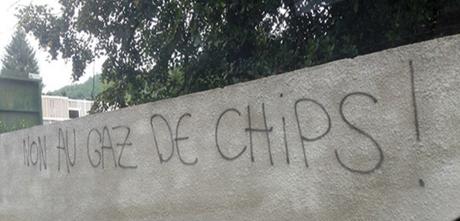 NON AU GAZ DE CHiPS !